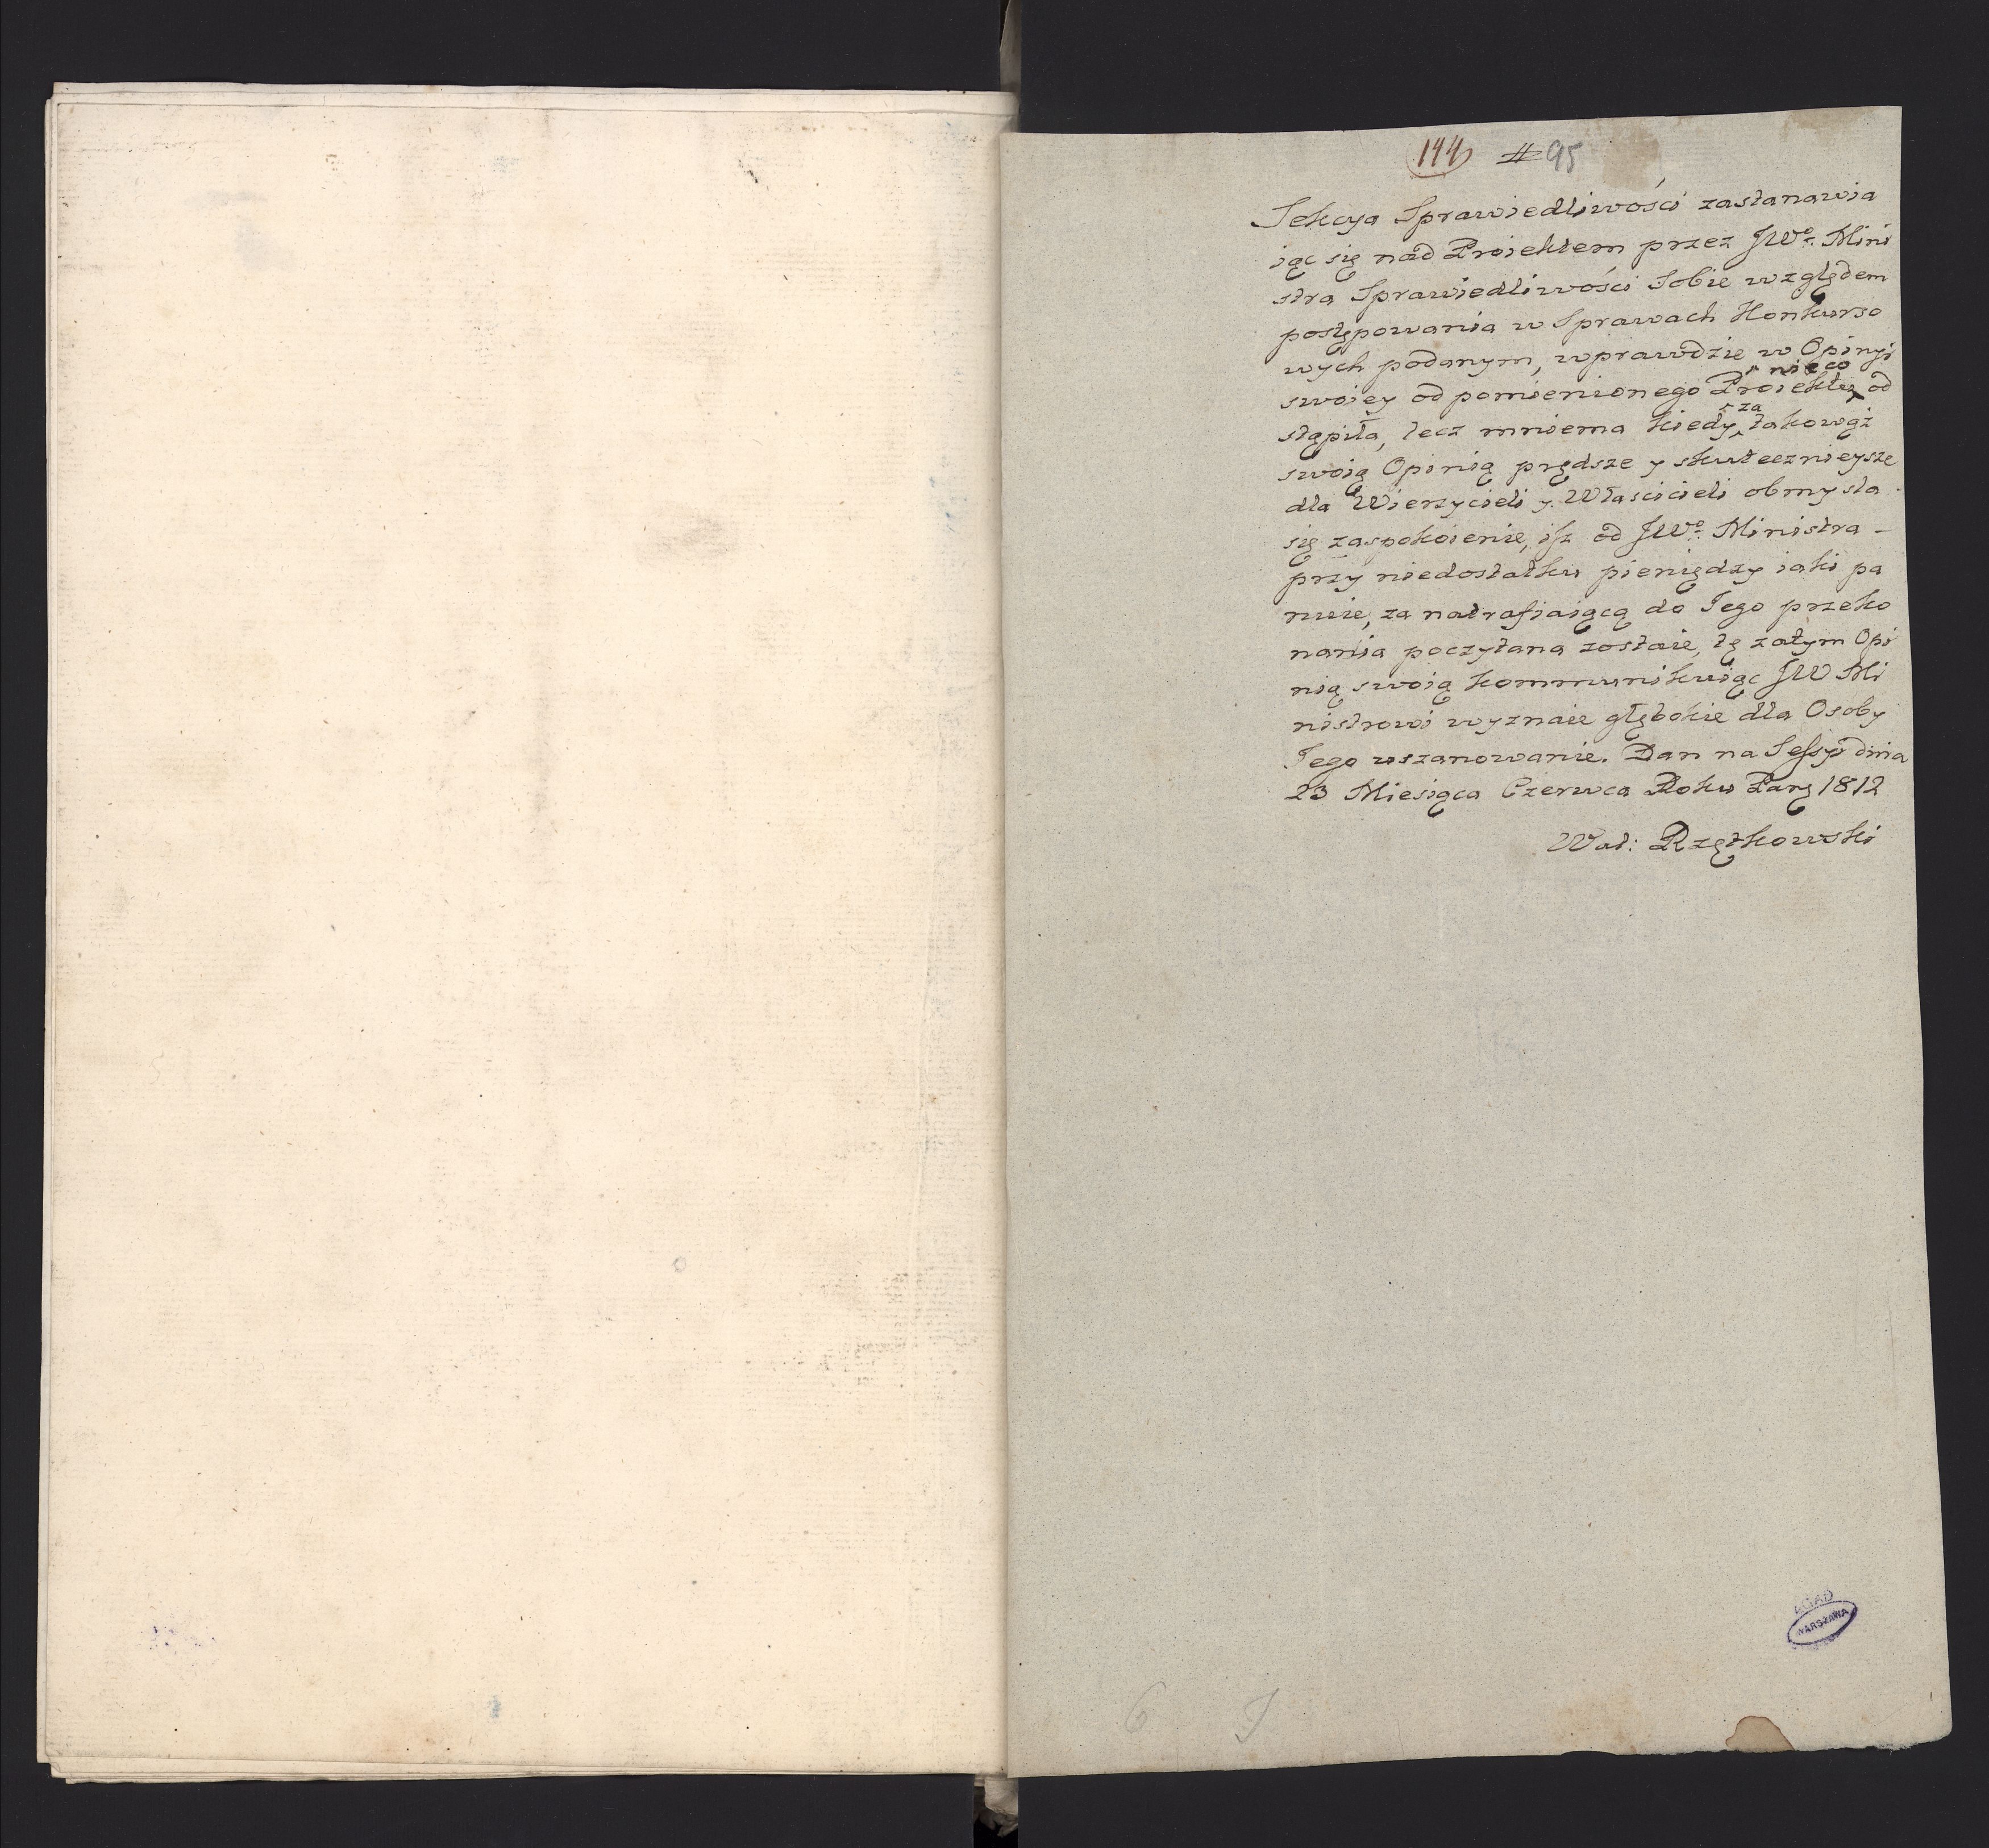 144 # 95
Sekcya Sprawiedliwości zastanawia
iąc się nad Proiektem przez JWo. Mini
stra Sprawiedliwości Sobie względem
postępowania w Sprawach Konkurso
wych podanym, wprawdzie w Opinyi
nieco
swoiey od pomienionego Proiektu od
za
stąpiła, lecz mniema kiedy takowąż
swoią Opinią prędsze y skutecznieysze
dla Wierzycieli y Włascicieli obmysla
się zaspokoienie, isz od JWo. Ministra -
przy niedostatku pieniędzy iaki pa
nuie, za natrafiaiącą do Jego przeko
nania poczytana zostaie, tę zatym Opi
nią swoią kommunikuiąc JW Mi
nistrowi wyznaie głębokie dla Osoby
Jego uszanowanie. Dan na Sessyi dnia
23 Miesiąca Czerwca Roku Pang 1812
Wal: Rzętkowski
AGAD
WARSZAWA
6 J